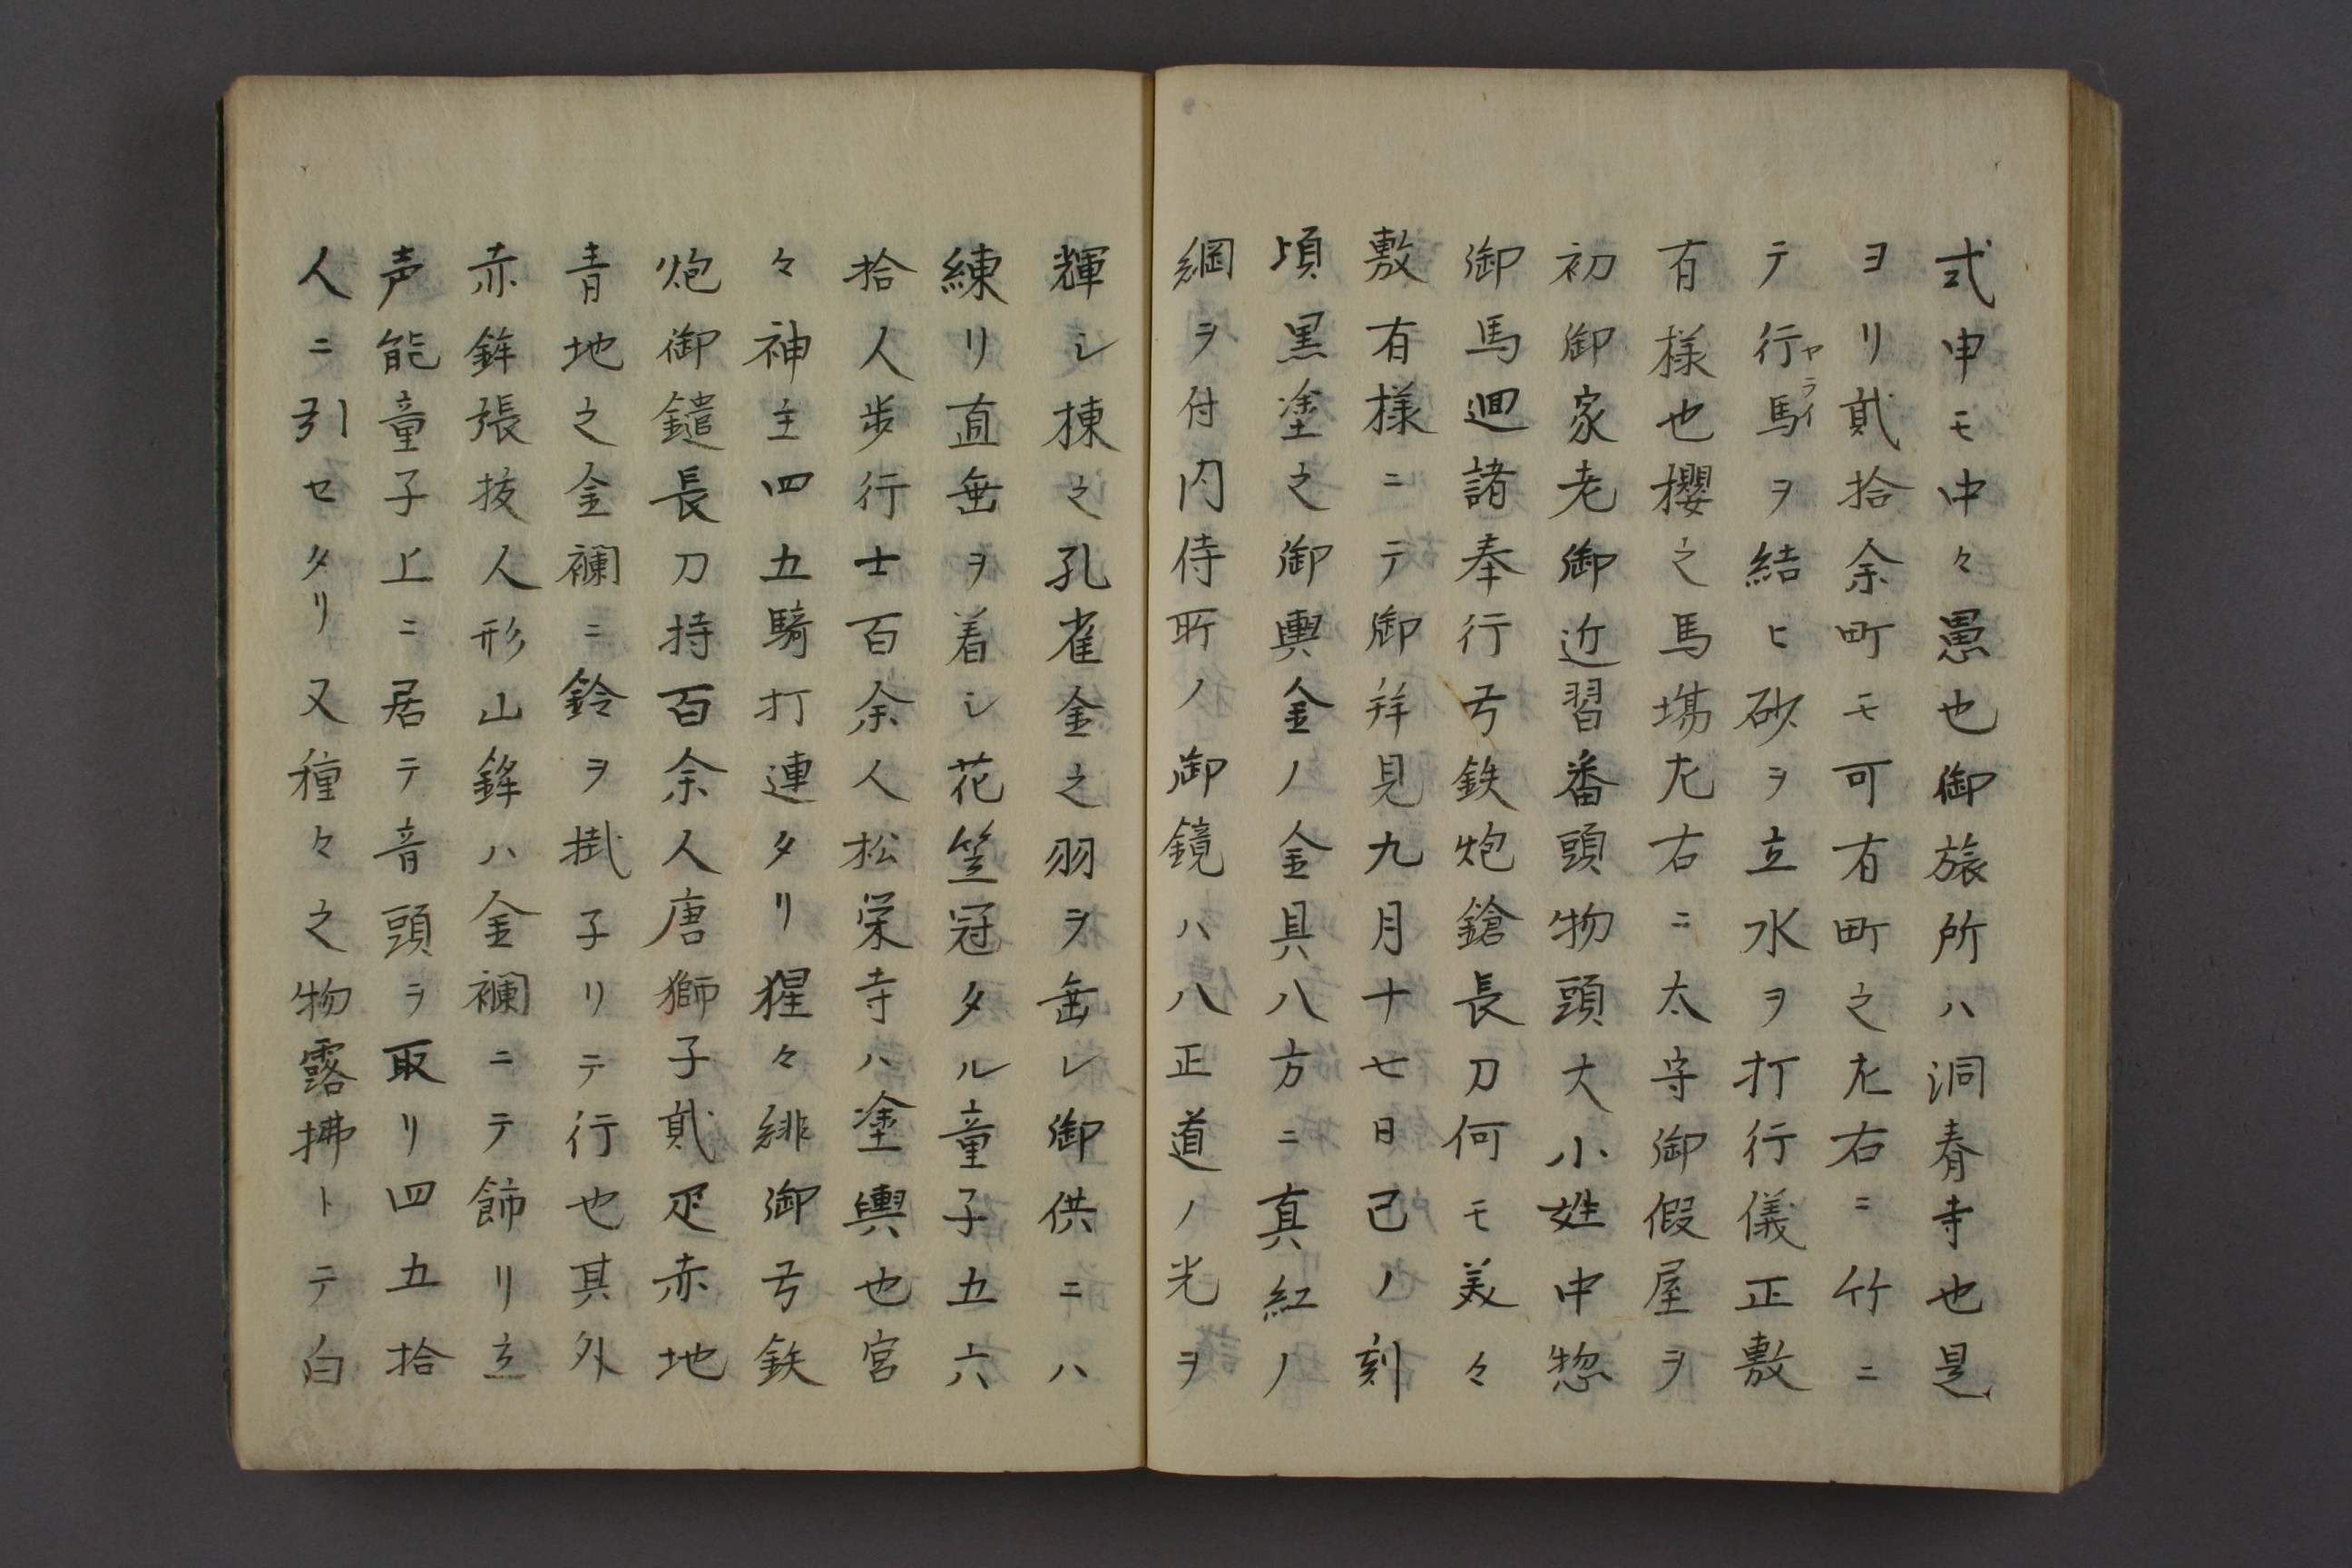 式申モ中々愚也御旅所ハ洞春寺也是
ヨリ貳拾余町モ可有町之左右ニ竹ニ
テ行馬ヤライヲ結ヒ砂ヲ立水ヲ打行儀正敷
有様也櫻之馬場左右ニ太守御假屋ヲ
初御家老御近習番頭物頭大小姓中惣
御馬廻諸奉行弓鉄炮鎗長刀何モ美々
敷有様ニテ御拜見九月十七日己ノ刻
頃黒塗之御輿金ノ金具八方ニ真紅ノ
綱ヲ付内侍所ノ御鏡ハ八正道ノ光ヲ
輝シ棟之孔雀金之羽ヲ垂レ御供ニハ
練リ直垂ヲ着シ花笠冠タル童子五六
拾人歩行士百余人松栄寺ハ塗輿也宮
々神主四五騎打連タリ猩々緋御弓鉄
炮御鑓長刀持百余人唐獅子貳疋赤地
青地之金襴ニ鈴ヲ掛子リテ行也其外
赤鉾張抜人形山鉾ハ金襴ニテ飾リ立
声能童子上ニ居テ音頭ヲ取リ四五拾
人ニ引セタリ又種々之物露拂トテ白